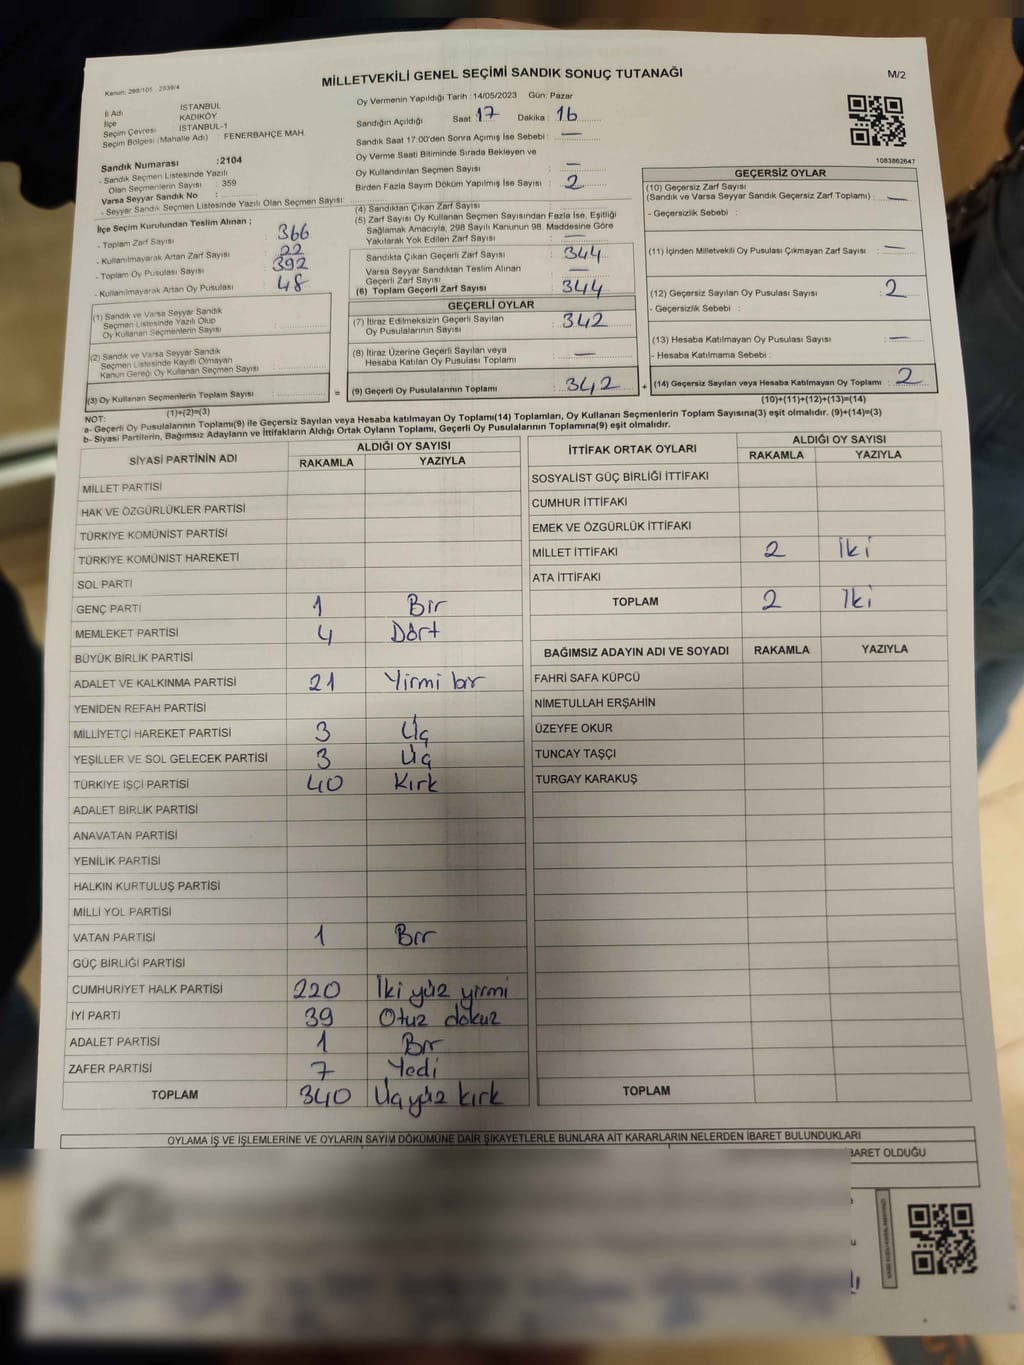 MİLLETVEKİLİ GENEL SEÇİMİ SANDIK SONUÇ TUTANAĞI
M/2
Kanun: 298/105 , 2839/4
İl Adı İSTANBUL
İlçe KADIKÖY
Seçim Çevresi İSTANBUL-1
Seçim Bölgesi (Mahalle Adı) : FENERBAHÇE MAH.
Sandık Numarası :2104
- Sandık Seçmen Listesinde Yazılı
Olan Seçmenlerin Sayısı : 359
Varsa Seyyar Sandık No :
- Seyyar Sandık Seçmen Listesinde Yazılı Olan Seçmen Sayısı:
İlçe Seçim Kurulundan Teslim Alınan ;
- Toplam Zarf Sayısı 366
- Kullanılmayarak Artan Zarf Sayısı 22
- Toplam Oy Pusulası Sayısı 392
- Kullanılmayarak Artan Oy Pusulası 48
(1) Sandık ve Varsa Seyyar Sandık
Seçmen Listesinde Yazılı Olup
Oy Kullanan Seçmenlerin Sayısı :
(2) Sandık ve Varsa Seyyar Sandık
Seçmen Listesinde Kayıtlı Olmayan
Kanun Gereği Oy Kullanan Seçmen Sayısı :
(3) Oy Kullanan Seçmenlerin Toplam Sayısı :
(1)+(2)=(3)
Oy Vermenin Yapıldığı Tarih : 14/05/2023 Gün: Pazar
Sandığın Açıldığı Saat : 17 Dakika : 16
Sandık Saat 17:00'den Sonra Açımış İse Sebebi : —
Oy Verme Saati Bitiminde Sırada Bekleyen ve
Oy Kullandırılan Seçmen Sayısı : —
Birden Fazla Sayım Döküm Yapılmış İse Sayısı : 2
(4) Sandıktan Çıkan Zarf Sayısı :
(5) Zarf Sayısı Oy Kullanan Seçmen Sayısından Fazla İse, Eşitliği
Sağlamak Amacıyla, 298 Sayılı Kanunun 98. Maddesine Göre
Yakılarak Yok Edilen Zarf Sayısı : —
Sandıkta Çıkan Geçerli Zarf Sayısı : 344
Varsa Seyyar Sandıktan Teslim Alınan
Geçerli Zarf Sayısı : —
(6) Toplam Geçerli Zarf Sayısı : 344
GEÇERLİ OYLAR
(7) İtiraz Edilmeksizin Geçerli Sayılan
Oy Pusulalarının Sayısı : 342
(8) İtiraz Üzerine Geçerli Sayılan veya
Hesaba Katılan Oy Pusulası Toplamı : —
= (9) Geçerli Oy Pusulalarının Toplamı : 342 +
1083862647
GEÇERSİZ OYLAR
(10) Geçersiz Zarf Sayısı
(Sandık ve Varsa Seyyar Sandık Geçersiz Zarf Toplamı) : —
- Geçersizlik Sebebi :
(11) İçinden Milletvekili Oy Pusulası Çıkmayan Zarf Sayısı : —
(12) Geçersiz Sayılan Oy Pusulası Sayısı : 2
- Geçersizlik Sebebi :
(13) Hesaba Katılmayan Oy Pusulası Sayısı : —
- Hesaba Katılmama Sebebi :
(14) Geçersiz Sayılan veya Hesaba Katılmayan Oy Toplamı : 2
(10)+(11)+(12)+(13)=(14)
NOT:
a- Geçerli Oy Pusulalarının Toplamı(9) ile Geçersiz Sayılan veya Hesaba katılmayan Oy Toplamı(14) Toplamları, Oy Kullanan Seçmenlerin Toplam Sayısına(3) eşit olmalıdır. (9)+(14)=(3)
b- Siyasi Partilerin, Bağımsız Adayların ve İttifakların Aldığı Ortak Oyların Toplamı, Geçerli Oy Pusulalarının Toplamına(9) eşit olmalıdır.
SİYASİ PARTİNİN ADI ALDIĞI OY SAYISI
RAKAMLA YAZIYLA
MİLLET PARTİSİ
HAK VE ÖZGÜRLÜKLER PARTİSİ
TÜRKİYE KOMÜNİST PARTİSİ
TÜRKİYE KOMÜNİST HAREKETİ
SOL PARTİ
GENÇ PARTİ 1 Bir
MEMLEKET PARTİSİ 4 Dört
BÜYÜK BİRLİK PARTİSİ
ADALET VE KALKINMA PARTİSİ 21 Yirmi bir
YENİDEN REFAH PARTİSİ
MİLLİYETÇİ HAREKET PARTİSİ 3 Üç
YEŞİLLER VE SOL GELECEK PARTİSİ 3 Üç
TÜRKİYE İŞÇİ PARTİSİ 40 Kırk
ADALET BİRLİK PARTİSİ
ANAVATAN PARTİSİ
YENİLİK PARTİSİ
HALKIN KURTULUŞ PARTİSİ
MİLLİ YOL PARTİSİ
VATAN PARTİSİ 1 Bir
GÜÇ BİRLİĞİ PARTİSİ
CUMHURİYET HALK PARTİSİ 220 İki yüz yirmi
İYİ PARTİ 39 Otuz dokuz
ADALET PARTİSİ 1 Bir
ZAFER PARTİSİ 7 Yedi
TOPLAM 340 Üçyüz kırk
İTTİFAK ORTAK OYLARI ALDIĞI OY SAYISI
RAKAMLA YAZIYLA
SOSYALİST GÜÇ BİRLİĞİ İTTİFAKI
CUMHUR İTTİFAKI
EMEK VE ÖZGÜRLÜK İTTİFAKI
MİLLET İTTİFAKI 2 İki
ATA İTTİFAKI
TOPLAM 2 İki
BAĞIMSIZ ADAYIN ADI VE SOYADI RAKAMLA YAZIYLA
FAHRİ SAFA KÜPCÜ
NİMETULLAH ERŞAHİN
ÜZEYFE OKUR
TUNCAY TAŞÇI
TURGAY KARAKUŞ
TOPLAM
OYLAMA İŞ VE İŞLEMLERİNE VE OYLARIN SAYIM DÖKÜMÜNE DAİR ŞİKAYETLERLE BUNLARA AİT KARARLARIN NELERDEN İBARET BULUNDUKLARI
BARET OLDUĞU